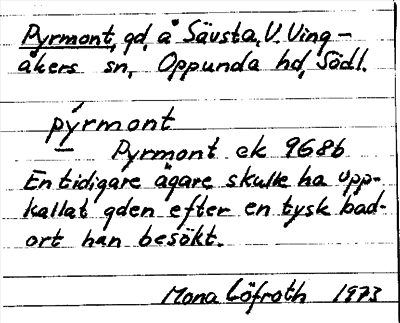 Pyrmont, gd, å Sävsta, V. Ving-
åkers sn, Oppunda hd, Södl.
pýrmont
Pyrmont ek 968b
En tidigare ägare skulle ha upp-
kallat gden efter en tysk bad-
ort han besökt.
Mona Löfroth 1973